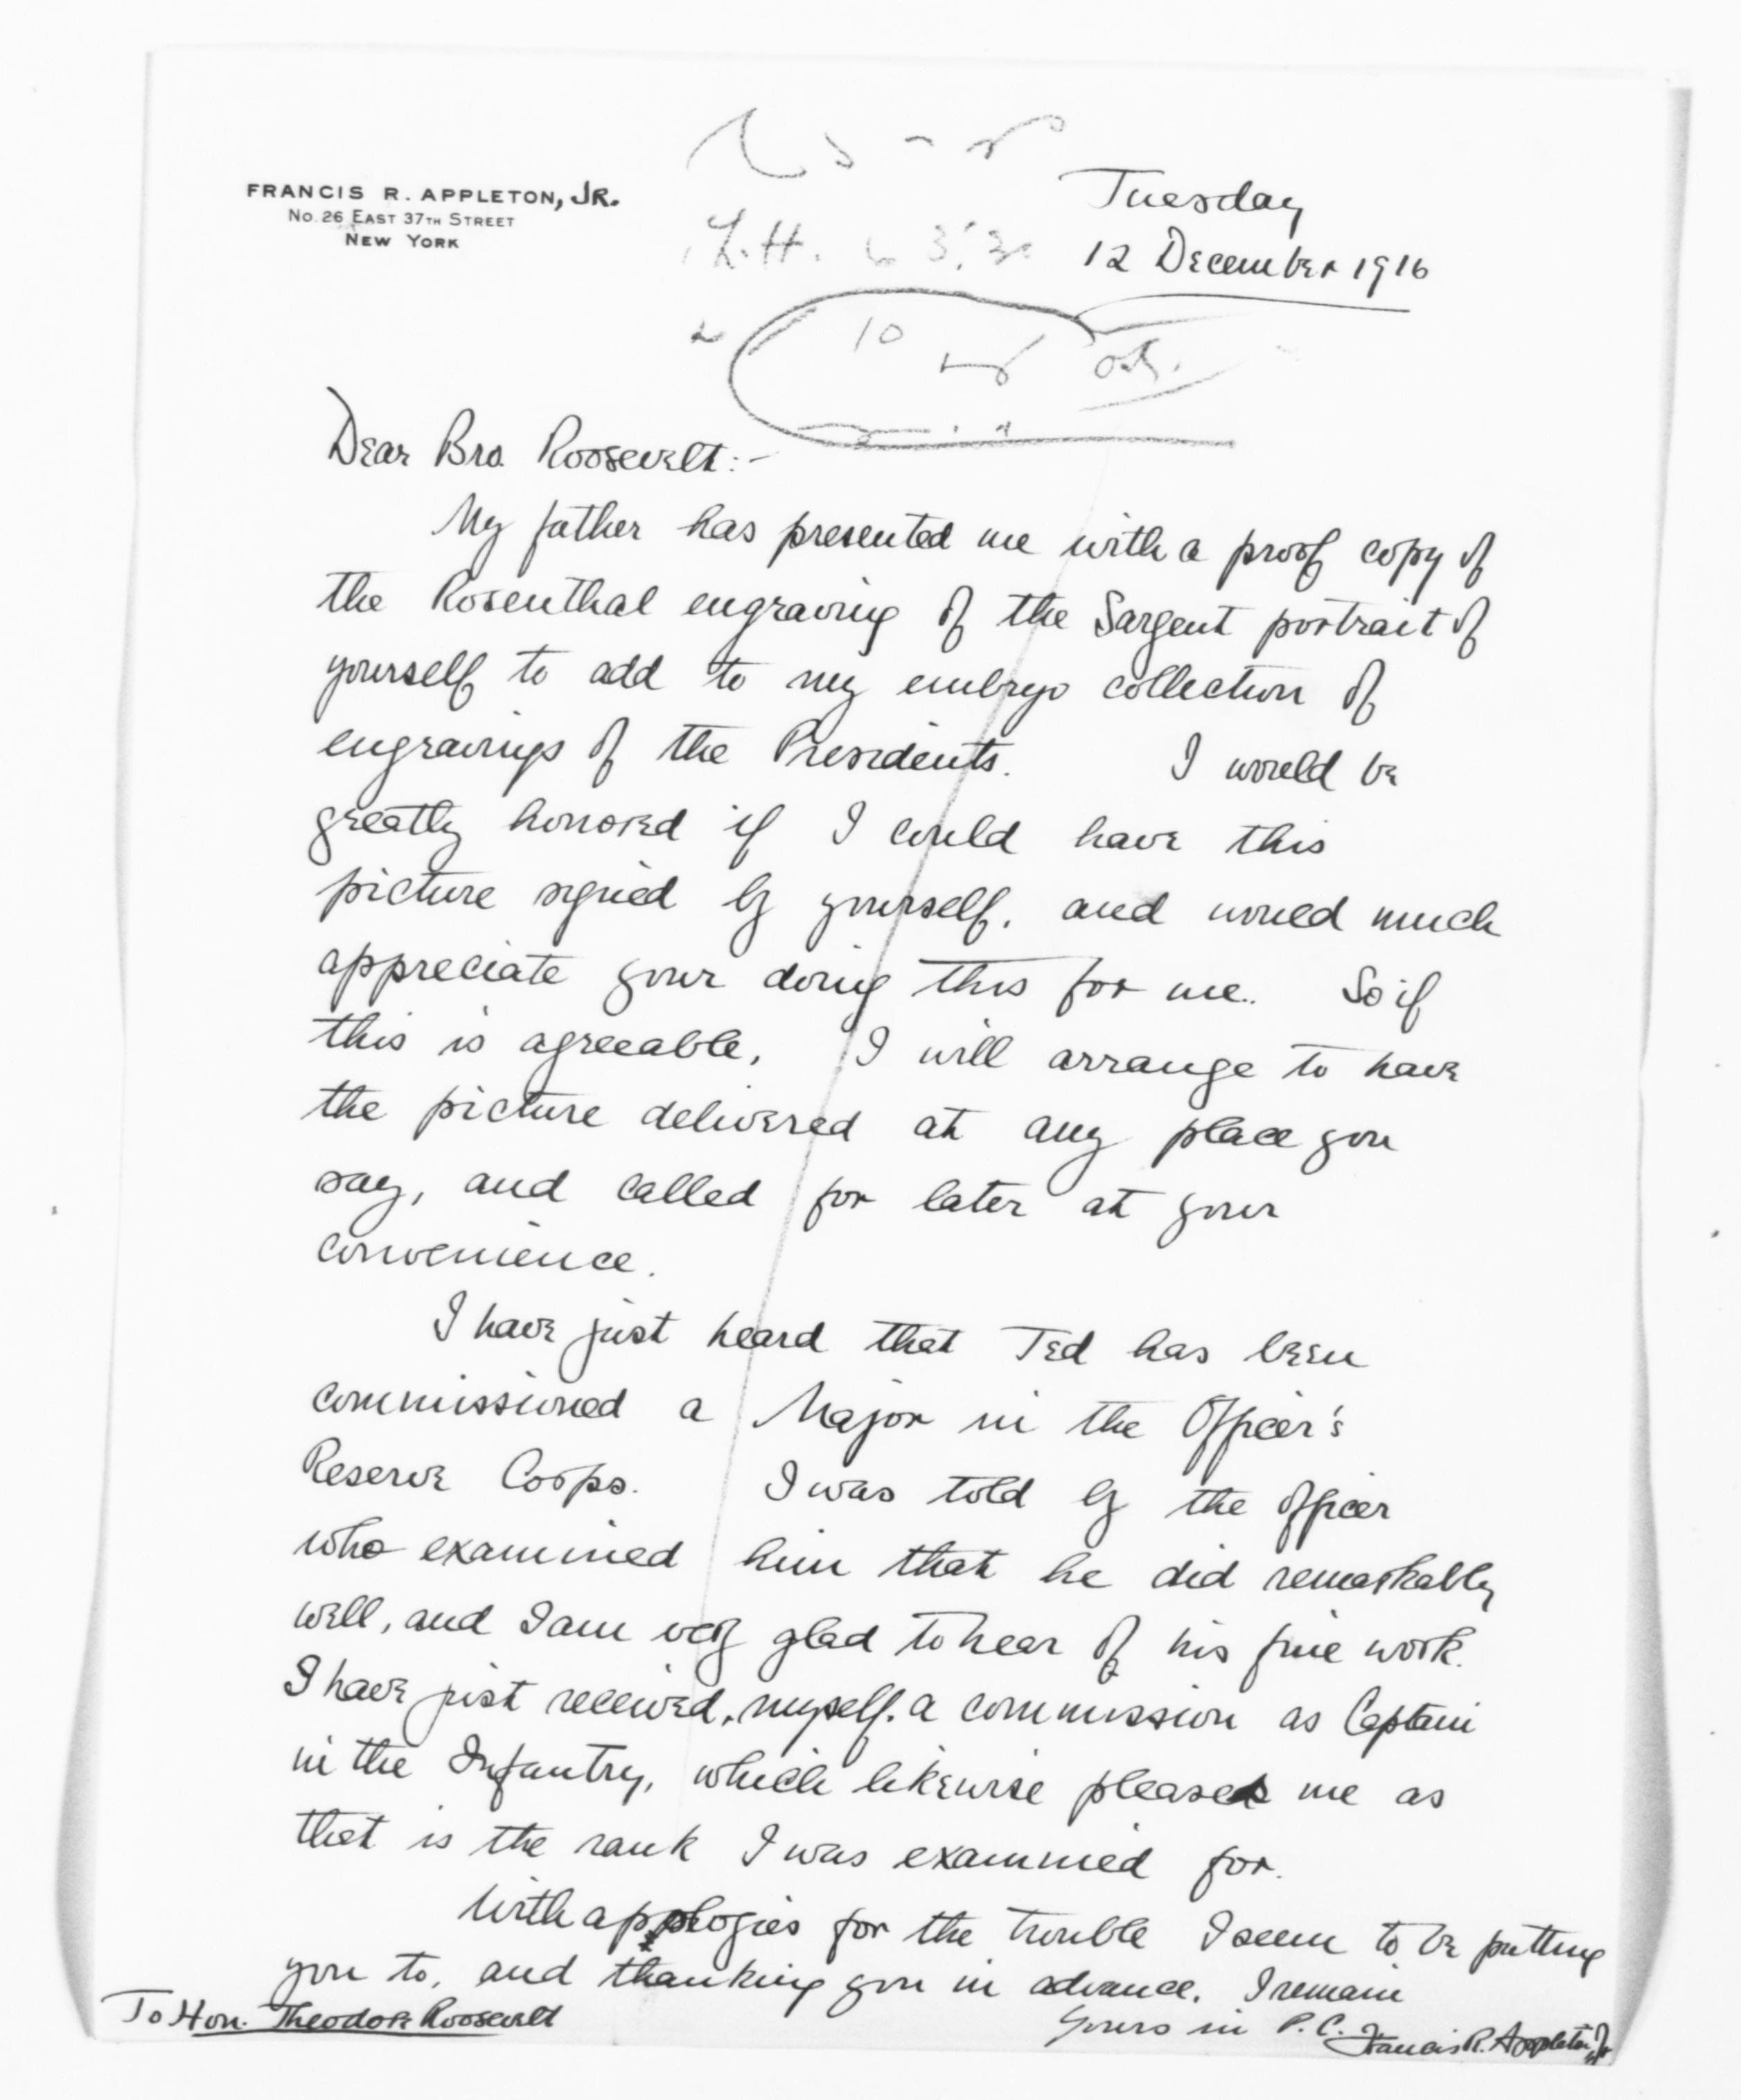 FRANCIS R. APPLETON, JR.
No. 26 East 37th Street
New York
Tuesday
12 December 1916
10
Dear Bro. Roosevelt:-
My father has presented me with a proof copy of
the Rosenthal engraving of the Sargent portrait of
yourself to add to my embryo collection of
engravings of the Presidents. I would be
greatly honored if I could have this
picture signed by yourself, and would much
appreciate your doing this for me. So if
this is agreeable, I will arrange to have
the picture delivered at any place you
say, and called for later at your
convenience.
I have just heard that Ted has been
commissioned a Major in the Officer's
Reserve Corps. I was told by the officer
who examined him that he did remarkably
well, and I am very glad to hear of his fine work.
I have just received, myself, a commission as Captain
in the Infantry, which likewise pleases me as
that is the rank I was examined for.
With apologies for the trouble I seem to be putting
you to, and thanking you in advance, I remain
Yours in P.C. Francis R. Appleton Jr
To Hon. Theodore Roosevelt